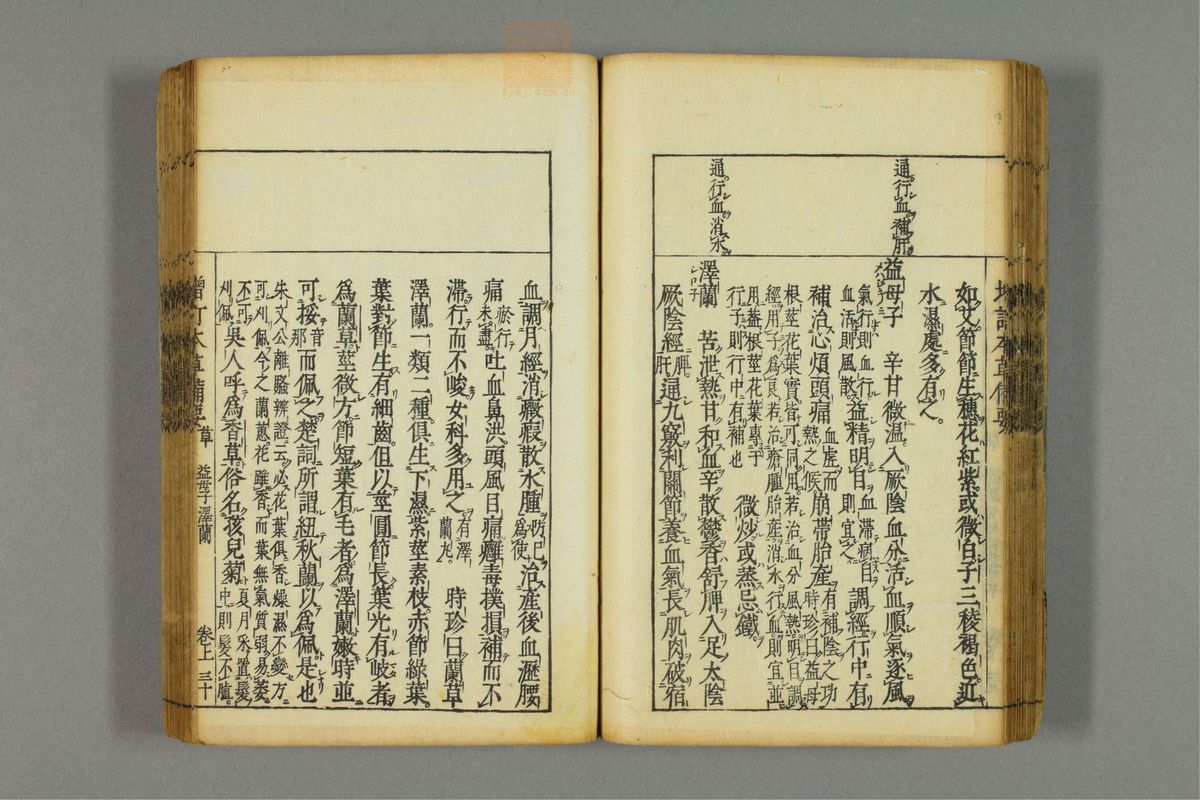 通行血補肝
通行血消水
如艾節節生穗花紅紫或微白子三稜褐色近
水濕處多有之。
益母子　辛甘微温入厥陰血分活血順氣逐風
氣行則血行血活則風散益精明目血滯病目則宜之調經行中有
補治心煩頭痛血虛而熱之候崩帶胎產有補陰之功時珍曰益母
根莖花葉實皆可同用若治血分風熱明目調
經用子爲良若治瘡腫胎產消水行血則宜並
用蓋根莖花葉專于行子則行中有補也　微炒或蒸忌鐵。
澤蘭　苦泄熱甘和血辛散鬱香舒脾入足太陰
厥陰經脾肝通九竅利關節養血氣長肌肉破宿
血調月經消癥瘕散水腫防己爲使治產後血瀝腰
痛瘀行未盡吐血鼻洪頭風目痛癰毒撲損補而不
滯行而不峻女科多用之有澤蘭丸　時珍曰蘭草
澤蘭一類二種俱生下濕紫莖素枝赤節綠葉。
葉對節生有細齒但以莖圓節長葉光有岐者
爲蘭草莖微方節短葉有毛者爲澤蘭嫩時並
可挼音那而佩之楚詞所謂紐秋蘭以爲佩是也
朱文公離騷辨證云必花葉俱香燥濕不變方
可刈佩今之蘭蕙花雖香而葉無氣質弱易萎
不可刈佩吳人呼爲香草俗名孩兒菊夏月采置髮中則髮不
増訂本草備要　草　益母子澤蘭　卷上　三十